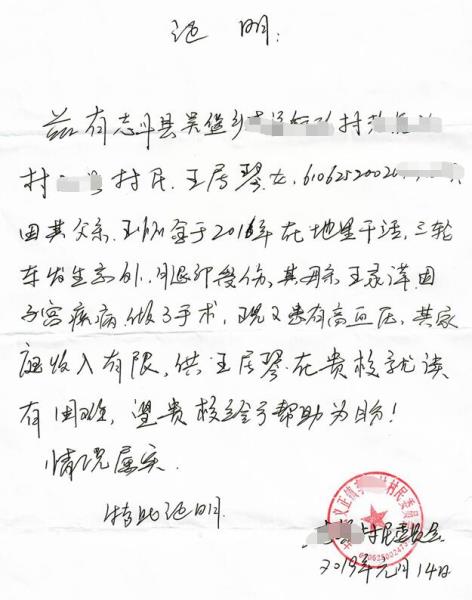 证 明:
兹有志丹县吴堡乡 村
村 村民.王居琴.女.6106252002
因其父亲.王 金于2018年在地里干活,三轮
车发生意外.腿部受伤,其母亲 王 萍因
子宫疾病.做了手术,现又患有高血压,其家
庭收入有限,供王居琴在贵校就读
有困难,望贵校给予帮助为盼!
情况属实.
特此证明.
村民委员会
2019年元月14日
义正镇 村民委员会